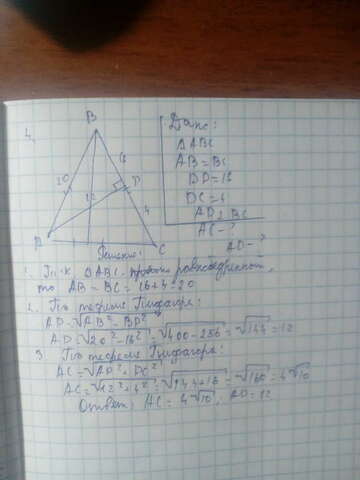 4.
B
20
16
12
D
4
A
C
Дано:
ΔABC
AB=BC
BD=16
DC=4
AD⊥BC
AC-?
AD-?
Решение:
1. Т.к. ΔABC- равнобедренный,
то AB=BC=16+4=20
2. По теореме Пифагора:
AD=√AB²-BD²
AD=√20²-16²=√400-256=√144=12
3. По теореме Пифагора:
AC=√AD²+DC²
AC=√12²+4²=√144+16=√160=4√10
Ответ: AC=4√10, AD=12